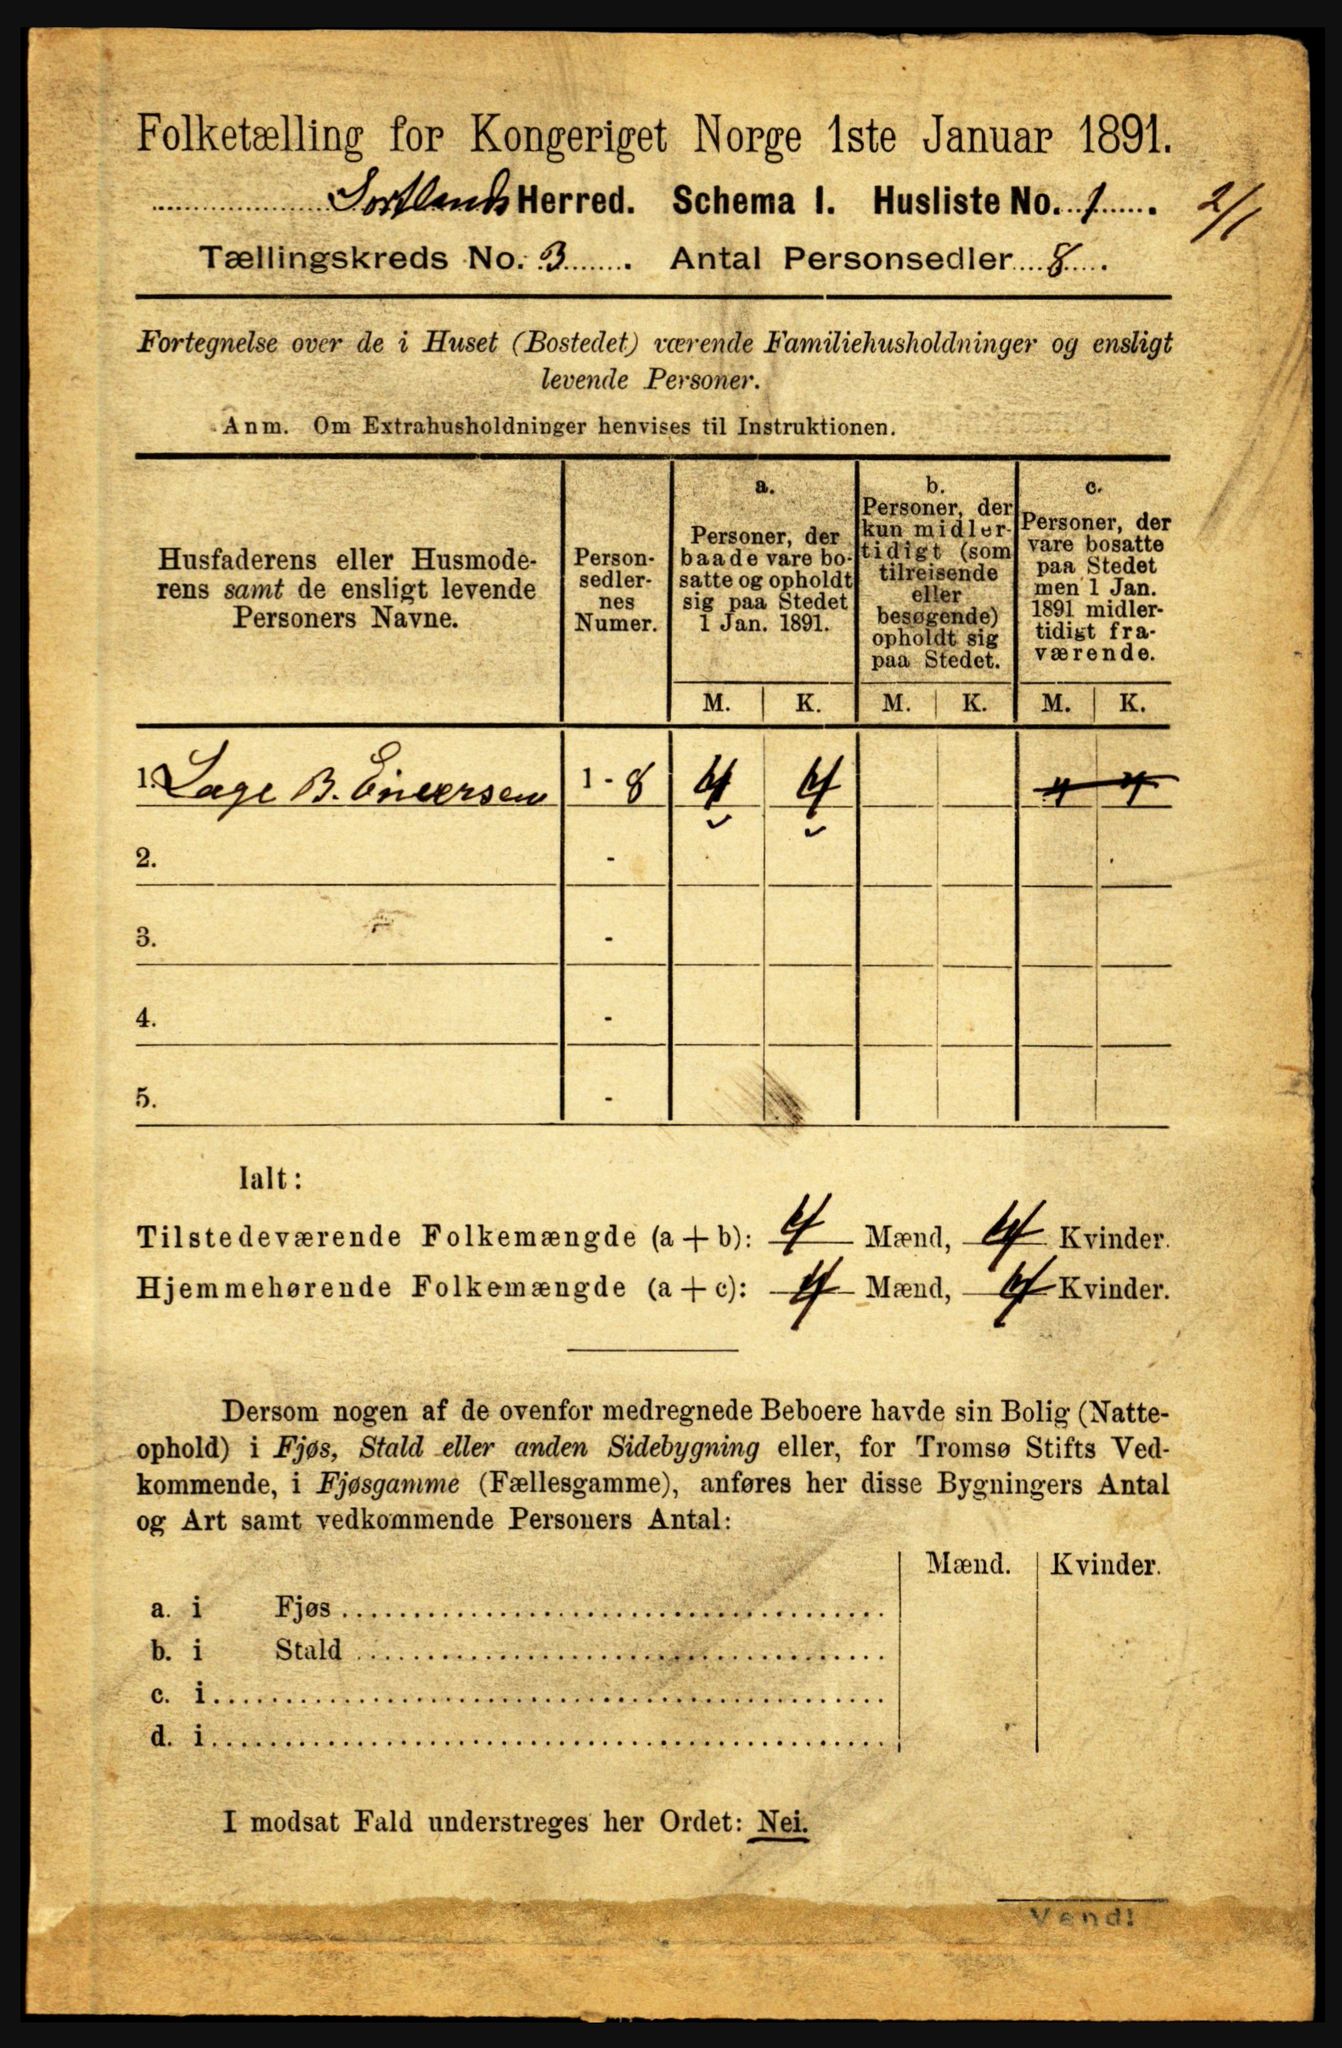 Folketælling for Kongeriget Norge 1ste Januar 1891.
Sortlands Herred. Schema I. Husliste No. 1. 2/1
Tællingskreds No. 3. Antal Personsedler 8.
Fortegnelse over de i Huset (Bostedet) værende Familiehusholdninger og ensligt
levende Personer.
Anm. Om Extrahusholdninger henvises til Instruktionen.
Husfaderens eller Husmode-
rens samt de ensligt levende
Personers Navne.
Person-
sedler-
nes
Numer.
a.
Personer, der
baade vare bo-
satte og opholdt
sig paa Stedet
1 Jan. 1891.
b.
Personer, der
kun midler-
tidigt (som
tilreisende
eller
besøgende)
opholdt sig
paa Stedet.
c.
Personer, der
vare bosatte
paa Stedet
men 1 Jan.
1891 midler-
tidigt fra-
værende.
M. K. M. K. M. K.
1. Lage B. Einersen 1 - 8 4 4 4 4
2. -
3. -
4. -
5. -
Ialt:
Tilstedeværende Folkemængde (a + b): 4 Mænd, 4 Kvinder.
Hjemmehørende Folkemængde (a + c): 4 Mænd, 4 Kvinder.
Dersom nogen af de ovenfor medregnede Beboere havde sin Bolig (Natte-
ophold) i Fjøs, Stald eller anden Sidebygning eller, for Tromsø Stifts Ved-
kommende, i Fjøsgamme (Fællesgamme), anføres her disse Bygningers Antal
og Art samt vedkommende Personers Antal:
Mænd. Kvinder.
a. i Fjøs
b. i Stald
c. i
d. i
I modsat Fald understreges her Ordet: Nei.
Vend!